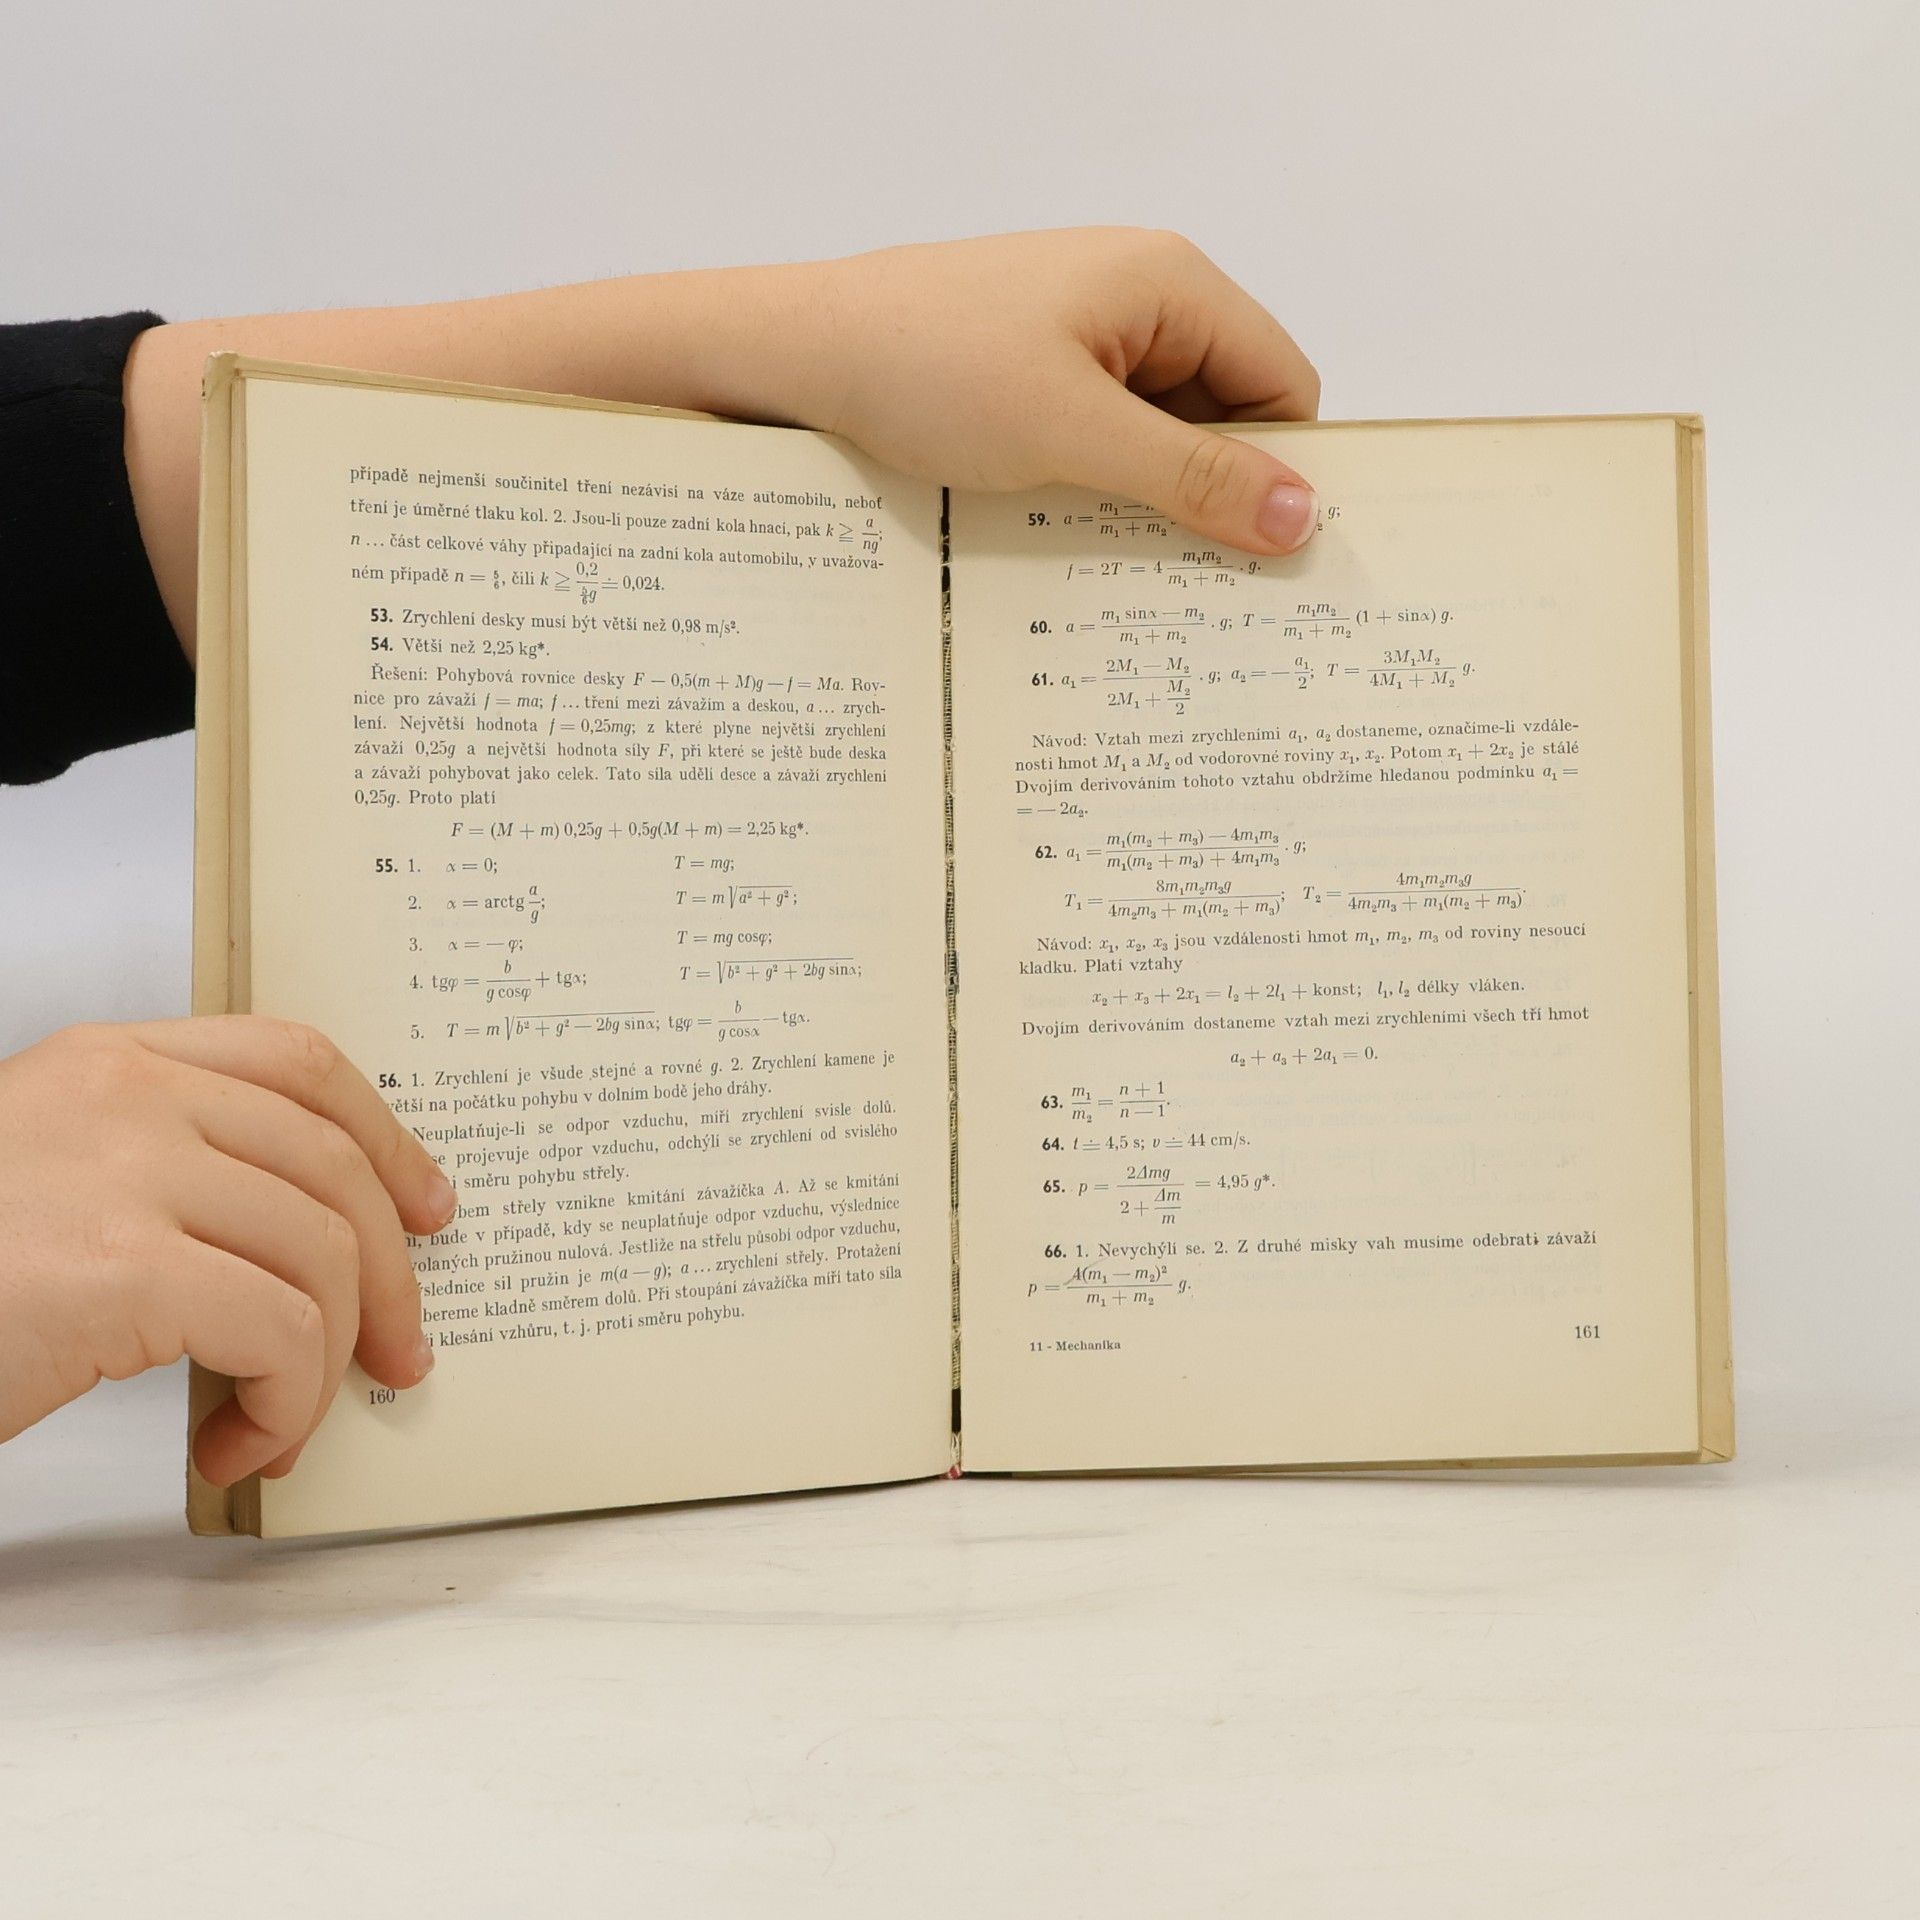 případě nejmenší součinitel tření nezávisí na váze automobilu, neboť
tření je úměrné tlaku kol. 2. Jsou-li pouze zadní kola hnací, pak k ≧ a/ng;
n ... část celkové váhy připadající na zadní kola automobilu, v uvažova-
ném případě n = 5/6, čili k ≧ 0,2/(5/6 g) ≐ 0,024.
53. Zrychlení desky musí být větší než 0,98 m/s².
54. Větší než 2,25 kg*.
Řešení: Pohybová rovnice desky F — 0,5(m + M)g — f = Ma. Rov-
nice pro závaží f = ma; f ... tření mezi závažím a deskou, a ... zrych-
lení. Největší hodnota f = 0,25mg; z které plyne největší zrychlení
závaží 0,25g a největší hodnota síly F, při které se ještě bude deska
a závaží pohybovat jako celek. Tato síla udělí desce a závaží zrychlení
0,25g. Proto platí
F = (M + m) 0,25g + 0,5g(M + m) = 2,25 kg*.
55. 1. α = 0; T = mg;
2. α = arctg a/g; T = m √(a² + g²);
3. α = — φ; T = mg cosφ;
4. tgφ = b/(g cosφ) + tgα; T = √(b² + g² + 2bg sinα);
5. T = m √(b² + g² — 2bg sinα); tgφ = b/(g cosα) — tgα.
56. 1. Zrychlení je všude stejné a rovné g. 2. Zrychlení kamene je
větší na počátku pohybu v dolním bodě jeho dráhy.
Neuplatňuje-li se odpor vzduchu, míří zrychlení svisle dolů.
se projevuje odpor vzduchu, odchýlí se zrychlení od svislého
směru pohybu střely.
střely vznikne kmitání závažíčka A. Až se kmitání
bude v případě, kdy se neuplatňuje odpor vzduchu, výslednice
pružinou nulová. Jestliže na střelu působí odpor vzduchu,
výslednice sil pružin je m(a — g); a ... zrychlení střely. Protažení
bereme kladně směrem dolů. Při stoupání závažíčka míří tato síla
klesání vzhůru, t. j. proti směru pohybu.
160
59. a = m₁ — /(m₁ + m₂ g;
f = 2T = 4 m₁m₂/(m₁ + m₂) . g.
60. a = (m₁ sinα — m₂)/(m₁ + m₂) . g; T = m₁m₂/(m₁ + m₂) (1 + sinα) g.
61. a₁ = (2M₁ — M₂)/(2M₁ + M₂/2) . g; a₂ = — a₁/2; T = 3M₁M₂/(4M₁ + M₂) g.
Návod: Vztah mezi zrychleními a₁, a₂ dostaneme, označíme-li vzdále-
nosti hmot M₁ a M₂ od vodorovné roviny x₁, x₂. Potom x₁ + 2x₂ je stálé
Dvojím derivováním tohoto vztahu obdržíme hledanou podmínku a₁ =
= — 2a₂.
62. a₁ = (m₁(m₂ + m₃) — 4m₁m₃)/(m₁(m₂ + m₃) + 4m₁m₃) . g;
T₁ = 8m₁m₂m₃g/(4m₂m₃ + m₁(m₂ + m₃)); T₂ = 4m₁m₂m₃g/(4m₂m₃ + m₁(m₂ + m₃)).
Návod: x₁, x₂, x₃ jsou vzdálenosti hmot m₁, m₂, m₃ od roviny nesoucí
kladku. Platí vztahy
x₂ + x₃ + 2x₁ = l₂ + 2l₁ + konst; l₁, l₂ délky vláken.
Dvojím derivováním dostaneme vztah mezi zrychleními všech tří hmot
a₂ + a₃ + 2a₁ = 0.
63. m₁/m₂ = (n + 1)/(n — 1).
64. t ≐ 4,5 s; v ≐ 44 cm/s.
65. p = 2Δmg/(2 + Δm/m) = 4,95 g*.
66. 1. Nevychýlí se. 2. Z druhé misky vah musíme odebrati závaží
p = 4(m₁ — m₂)²/(m₁ + m₂) g.
11 - Mechanika
161